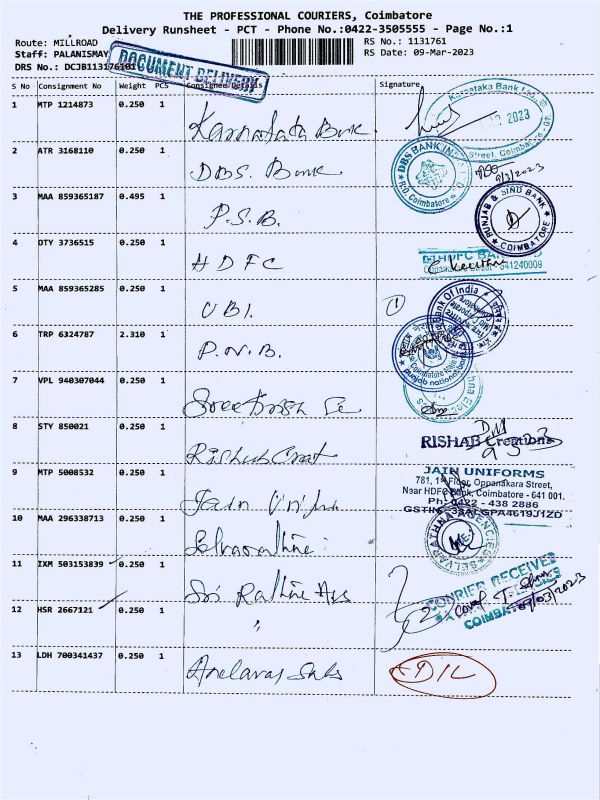 THE PROFESSIONAL COURIERS, Coimbatore
Delivery Runsheet - PCT - Phone No.:0422-3505555 - Page No.:1
Route: MILLROAD
RS No.: 1131761
Staff: PALANISMAY
RS Date: 09-Mar-2023
DRS No.: DCJB113176101
DOCUMENT DELIVERY
S No Consignment No Weight PCS Consignee Details Signature
1 MTP 1214873 0.250 1 Karnataka Bank
Karnataka Bank
2023
Street, Coimbatore
2 ATR 3168110 0.250 1 DBS. Bank
DBS BANK INDIA
R.O Coimbatore
9/3/2023
3 MAA 859365187 0.495 1 P.S.B.
PUNJAB & SIND BANK
COIMBATORE
4 OTY 3736515 0.250 1 HDFC
HDFC BANK
641240009
5 MAA 859365285 0.250 1 UBI.
1
Bank Of India
6 TRP 6324787 2.310 1 P.N.B.
punjab national bank
7 VPL 940307044 0.250 1
8 STY 850021 0.250 1
RISHAB Creations
9 MTP 5008532 0.250 1 Jain
JAIN UNIFORMS
781, 1st Floor, Oppanakara Street,
Near HDFC Bank, Coimbatore - 641 001.
Ph: 0422 - 438 2886
10 MAA 296338713 0.250 1
SELVARATHNA AGENCIES
11 IXM 503153839 0.250 1 Sri
COURIER RECEIVED
12 HSR 2667121 0.250 1 "
2
COIMBATORE
09/03/2023
13 LDH 700341437 0.250 1
DIL